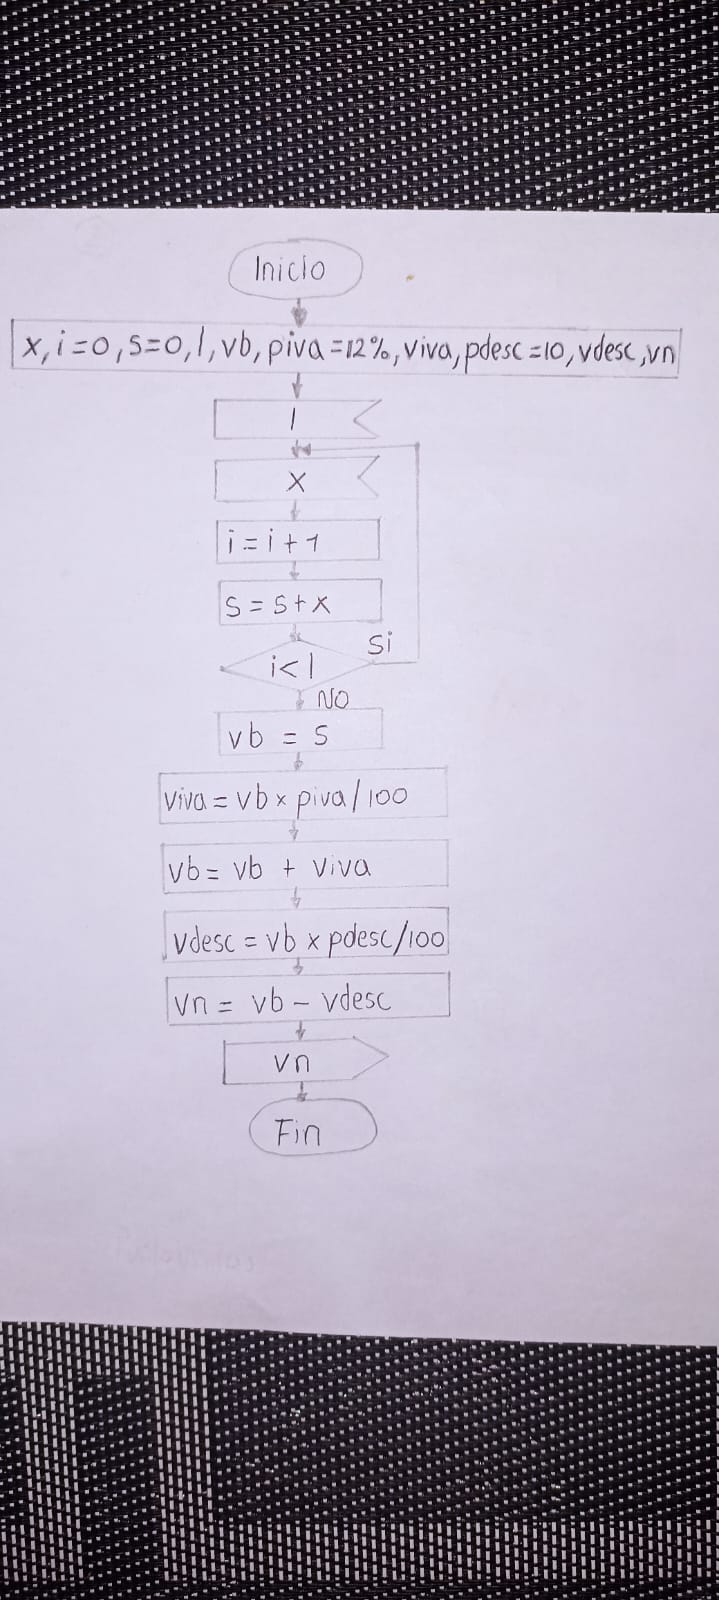 Inicio
x, i=0, s=0, l, vb, piva=12%, viva, pdesc=10, vdesc, vn
l
x
i=i+1
s=s+x
Si
i<l
NO
vb = s
viva = vb x piva/100
vb = vb + viva
vdesc = vb x pdesc/100
vn = vb - vdesc
vn
Fin